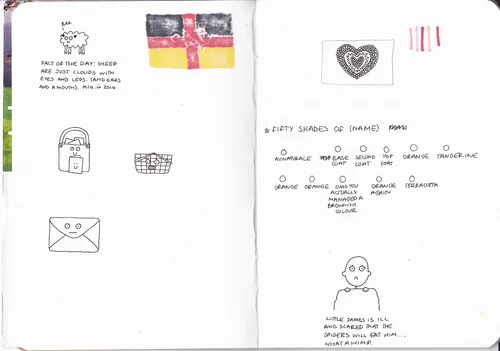 BAA
FACT OF THE DAY: SHEEP
ARE JUST CLOUDS WITH
EYES AND LEGS. (AND EARS
AND A MOUTH).
★ FIFTY SHADES OF (NAME)
BASE
COAT
SECOND
COAT
TOP
COAT
ORANGE
TANGERINE
ORANGE
ORANGE
OMG YOU
ACTUALLY
MANAGED A
BROWNISH
COLOUR
ORANGE
AGAIN
TERRACOTTA
LITTLE JAMES IS ILL
AND SCARED THAT THE
SPIDERS WILL EAT HIM...
WHAT A WIMP.